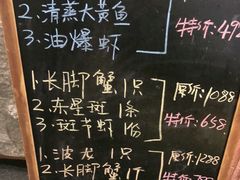 2.清蒸大黄鱼
3.油爆虾 特价:492
1.长脚蟹 1只 原价:1088
2.东星斑 1条
3.斑节虾 1份 特价:658
1.波龙 1只 原价:1288
2.长脚蟹 1只